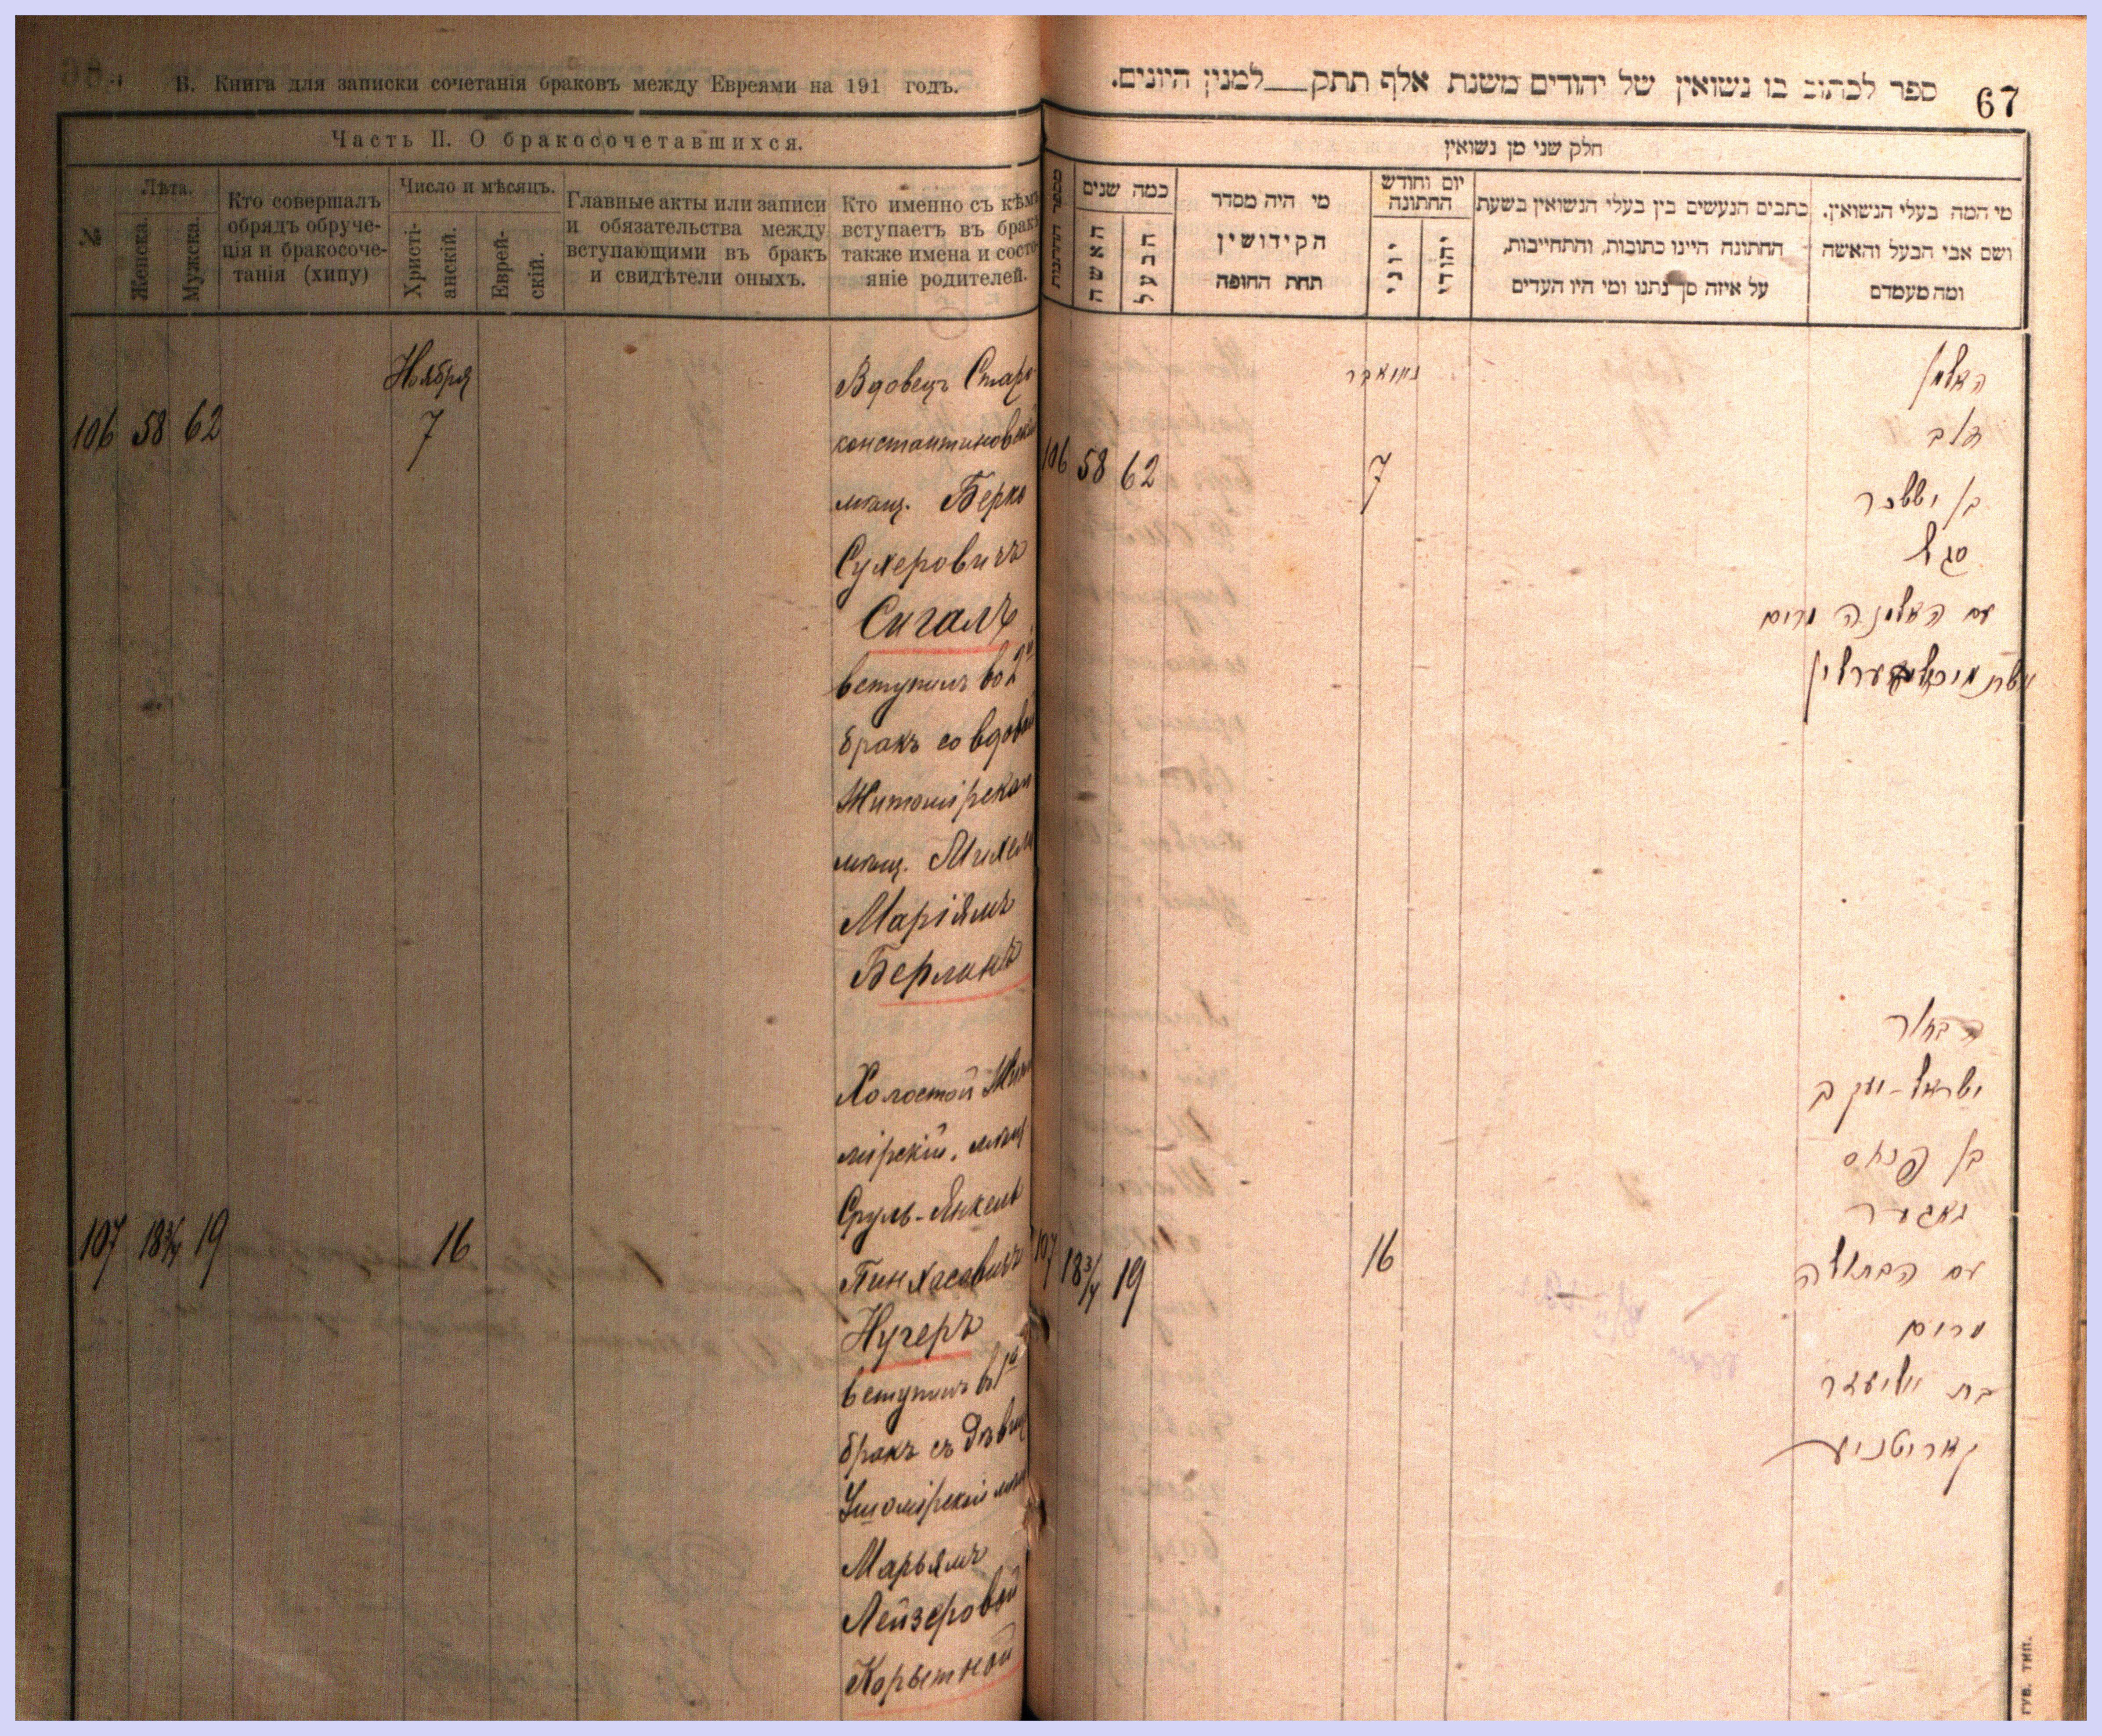 В. Книга для записки сочетанія браковъ между Евреями на 191 годъ.
Часть II. О бракосочетавшихся.
№
Лѣта.
Женска.
Мужска.
Кто совершалъ
обрядъ обруче-
нія и бракосоче-
танія (хипу)
Число и мѣсяцъ.
Христі-
анскій.
Еврей-
скій.
Главные акты или записи
и обязательства между
вступающими въ бракъ
и свидѣтели оныхъ.
Кто именно съ кѣмъ
вступаетъ въ бракъ
также имена и состо-
яніе родителей.
Ноября
106 58 62 7
Вдовецъ Старо-
константиновскій
мѣщ. Берко
Сухеровичъ
Сигалъ
вступилъ во 2й
бракъ со вдовой
Житомірской
мѣщ.
Маріямъ
Берлинъ
107 18 3/4 19 16
Холостой
мірскій. мѣщ
Сруль-Янкель
Пинхасовичъ
Нугеръ
вступилъ въ 1й
бракъ съ дѣвиц
Ушомірской мѣщ
Марьямъ
Лейзеровой
Корытной
ספר לכתוב בו נשואין של יהודים משנת אלף תתק__למנין היונים.
67
חלק שני מן נשואין
מספר החתונות
כמה שנים
האשה
הבעל
מי היה מסדר
הקידושין
תחת החופה
יום וחודש
החתונה
יוני
יהודי
כתבים הנעשים בין בעלי הנשואין בשעת
החתונה היינו כתובות, והתחייבות,
על איזה סך נתנו ומי היו העדים
מי המה בעלי הנשואין.
ושם אבי הבעל והאשה
ומה מעמדם
נאוואבר
106 58 62 7
האלמן
דוב
בן יששכר
סגל
עם האלמנה מרים
107 18 3/4 19 16
הבחור
ישראל-יעקב
בן פנחס
נאגער
עם הבתולה
מרים
בת אליעזר
קאריטנע
ГУБ. ТИП.